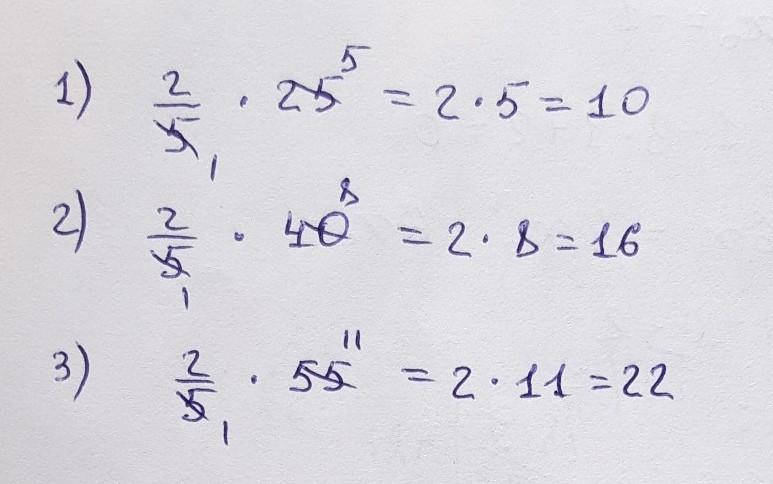 1) 2/5 1 · 25 5 = 2 · 5 = 10
2) 2/5 1 · 40 8 = 2 · 8 = 16
3) 2/5 1 · 55 11 = 2 · 11 = 22